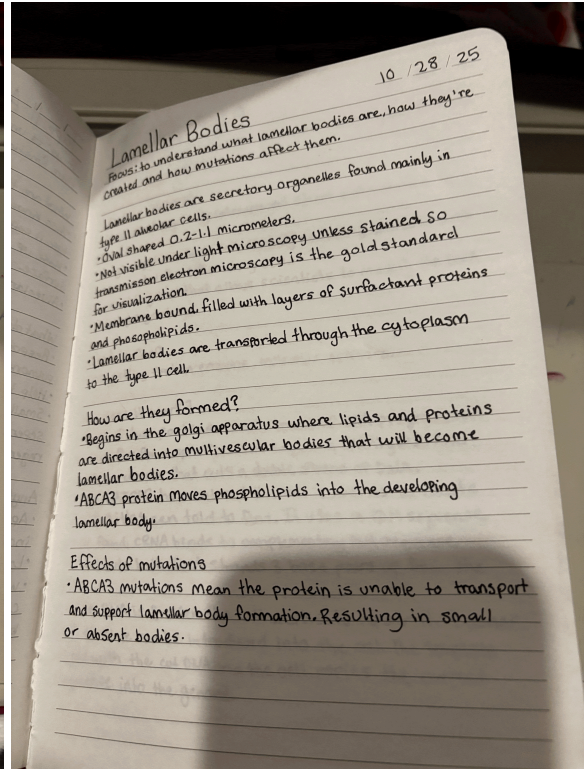 10 / 28 / 25
Lamellar Bodies
Focus: to understand what lamellar bodies are, how they're
created and how mutations affect them.
Lamellar bodies are secretory organelles found mainly in
type II alveolar cells.
• Oval shaped 0.2-1.1 micrometers.
• Not visible under light microscopy unless stained so
transmisson electron microscopy is the gold standard
for visualization.
• Membrane bound, filled with layers of surfactant proteins
and phosopholipids.
• Lamellar bodies are transported through the cytoplasm
to the type II cell.
How are they formed?
• Begins in the golgi apparatus where lipids and proteins
are directed into multivescular bodies that will become
lamellar bodies.
• ABCA3 protein moves phospholipids into the developing
lamellar body.
Effects of mutations
• ABCA3 mutations mean the protein is unable to transport
and support lamellar body formation. Resulting in small
or absent bodies.